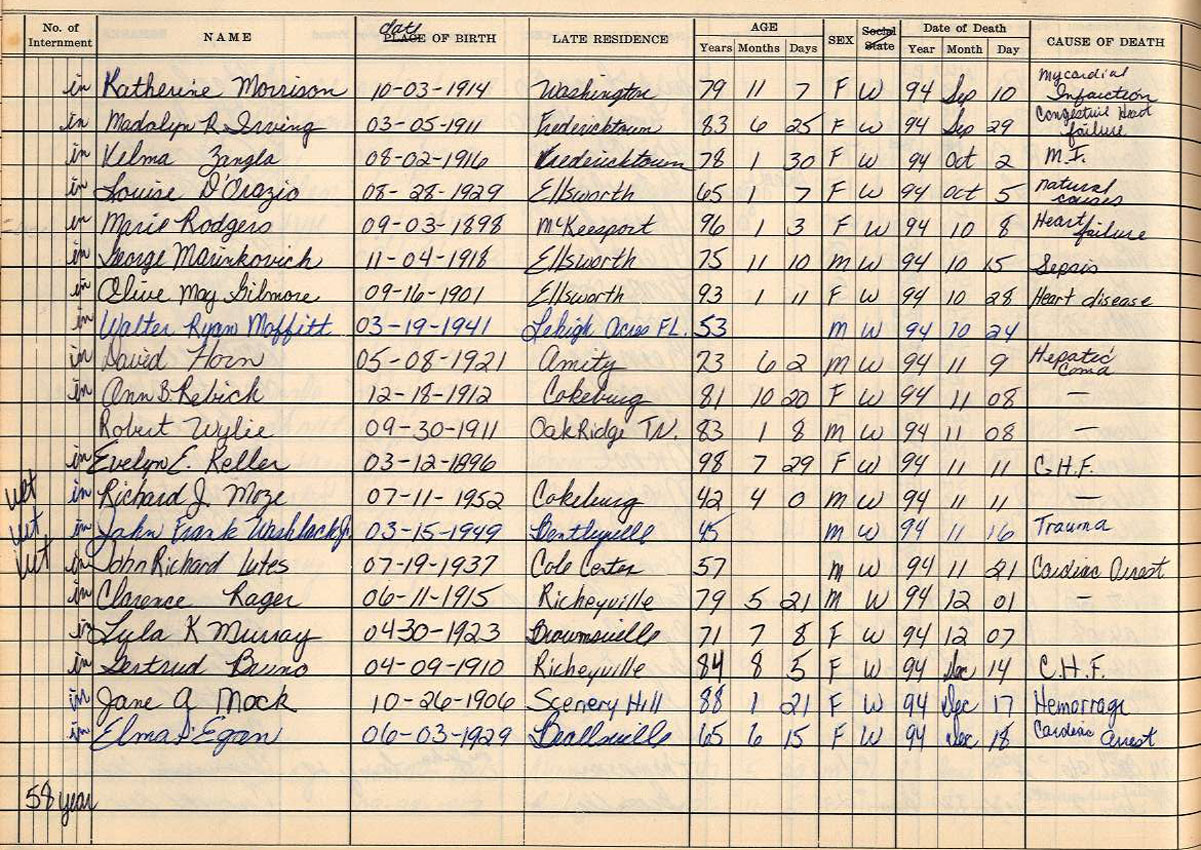 No. of Internment NAME date PLACE OF BIRTH LATE RESIDENCE AGE Years Months Days SEX Social State Date of Death Year Month Day CAUSE OF DEATH
in Katherine Morrison 10-03-1914 Washington 79 11 7 F W 94 Sep 10 Mycardial Infarction
in Madalyn R. Irving 03-05-1911 Fredericktown 83 6 25 F W 94 Sep 29 Congestive Heart failure
in Velma Zangla 08-02-1916 Fredericktown 78 1 30 F W 94 Oct 2 M.I.
in Louise D'Orazio 08-28-1929 Ellsworth 65 1 7 F W 94 Oct 5 natural causes
in Marie Rodgers 09-03-1898 McKeesport 96 1 3 F W 94 10 8 Heart failure
in George Marinkovich 11-04-1918 Ellsworth 75 11 10 M W 94 10 15 Sepsis
in Olive May Gilmore 09-16-1901 Ellsworth 93 1 11 F W 94 10 28 Heart disease
in Walter Ryan Moffitt 03-19-1941 Lehigh Acres FL. 53 M W 94 10 24
in David Horn 05-08-1921 Amity 73 6 2 M W 94 11 9 Hepatic Coma
in Ann B. Rebich 12-18-1912 Cokeburg 81 10 20 F W 94 11 08 —
Robert Wylie 09-30-1911 Oak Ridge TN. 83 1 8 M W 94 11 08 —
in Evelyn E. Keller 03-12-1896 98 7 29 F W 94 11 11 C.H.F.
vet in Richard J. Moze 07-11-1952 Cokeburg 42 4 0 M W 94 11 11 —
vet in John Frank Jr. 03-15-1949 Bentleyville 45 M W 94 11 16 Trauma
vet in John Richard Lutes 07-19-1937 Cole Center 57 M W 94 11 21 Cardiac Arrest
in Clarence Rager 06-11-1915 Richeyville 79 5 21 M W 94 12 01 —
in Lyla K Murray 04-30-1923 Brownsville 71 7 8 F W 94 12 07
in Gertrud Bruno 04-09-1910 Richeyville 84 8 5 F W 94 Dec 14 C.H.F.
in Jane A Mock 10-26-1906 Scenery Hill 88 1 21 F W 94 Dec 17 Hemorrage
in Elma Egan 06-03-1929 Beallsville 65 6 15 F W 94 Dec 18 Cardiac Arrest
58 year